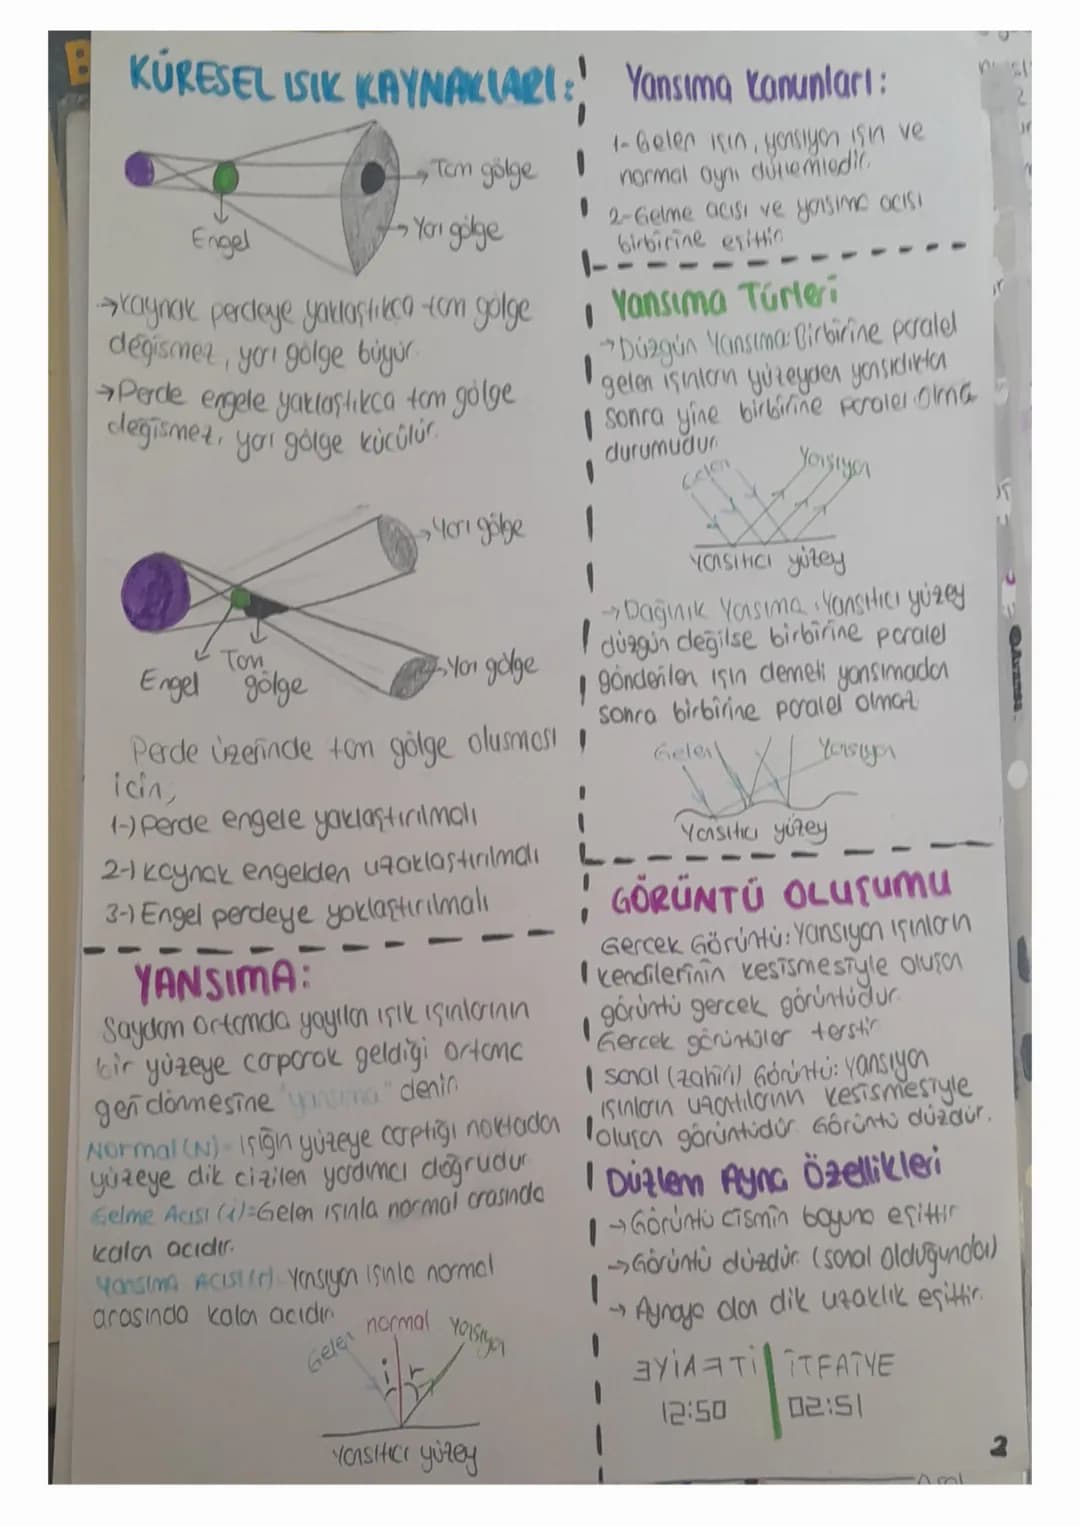 KÜRESEL ISIK KAYNAKLARI:
Tam gölge
Yarı gölge
Engel
→Kaynak perdeye yaklaştıkca tam gölge
değişmez, yarı gölge büyür.
→Perde engele yaklaştıkca tam gölge
değişmez, yarı gölge kücülür.
Yarı gölge
Engel
Tam
gölge
Yarı gölge
Perde üzerinde tam gölge olusması
icin,
1-) Perde engele yaklaştırılmalı
2-) kaynak engelden uzaklastırılmalı
3-) Engel perdeye yaklaştırılmalı
YANSIMA:
Saydam ortamda yayılan ışık ışınlarının
bir yüzeye carparak geldiği ortama
geri dönmesine "yansıma" denir.
Normal (N)= ışığın yüzeye carptığı noktadan
yüzeye dik cizilen yardımcı doğrudur
Gelme Acısı (i)=Gelen ışınla normal arasında
kalan acıdır.
Yansıma Acısı (r)= Yansıyan ışınla normal
arasında kalan acıdır.
Gelen
normal
Yansıyan
i r
Yansıtıcı yüzey
Yansıma Kanunları:
1- Gelen ışın, yansıyan ışın ve
normal aynı düzlemdedir.
2-Gelme acısı ve yansıma acısı
birbirine eşittir.
Yansıma Türleri
→Düzgün Yansıma: Birbirine paralel
gelen ışınların yüzeyden yansıdıktan
sonra yine birbirine paralel olma
durumudur.
Gelen
Yansıyan
YANSITICI yüzey
→Dağınık Yansıma: Yansıtıcı yüzey
düzgün değilse birbirine paralel
gönderilen ışın demeti yansımadan
sonra birbirine paralel olmaz
Gelen
Yansıyan
Yansıtıcı yüzey
GÖRÜNTÜ OLUŞUMU
Gercek Görüntü: Yansıyan ışınların
kendilerinin kesismesiyle oluşan
görüntü gercek görüntüdür.
Gercek görüntüler terstir
sanal (zahiri) Görüntü: Yansıyan
ışınların uzantılarının kesismesiyle
oluşan görüntüdür. Görüntü düzdür.
Düzlem Ayna Özellikleri
→Görüntü cismin boyuna eşittir
→Görüntü düzdür. (sanal olduğundan)
→ Aynaya olan dik uzaklık eşittir.
ƎYİAꟻTİ İTFAİYE
12:50 02:51
2